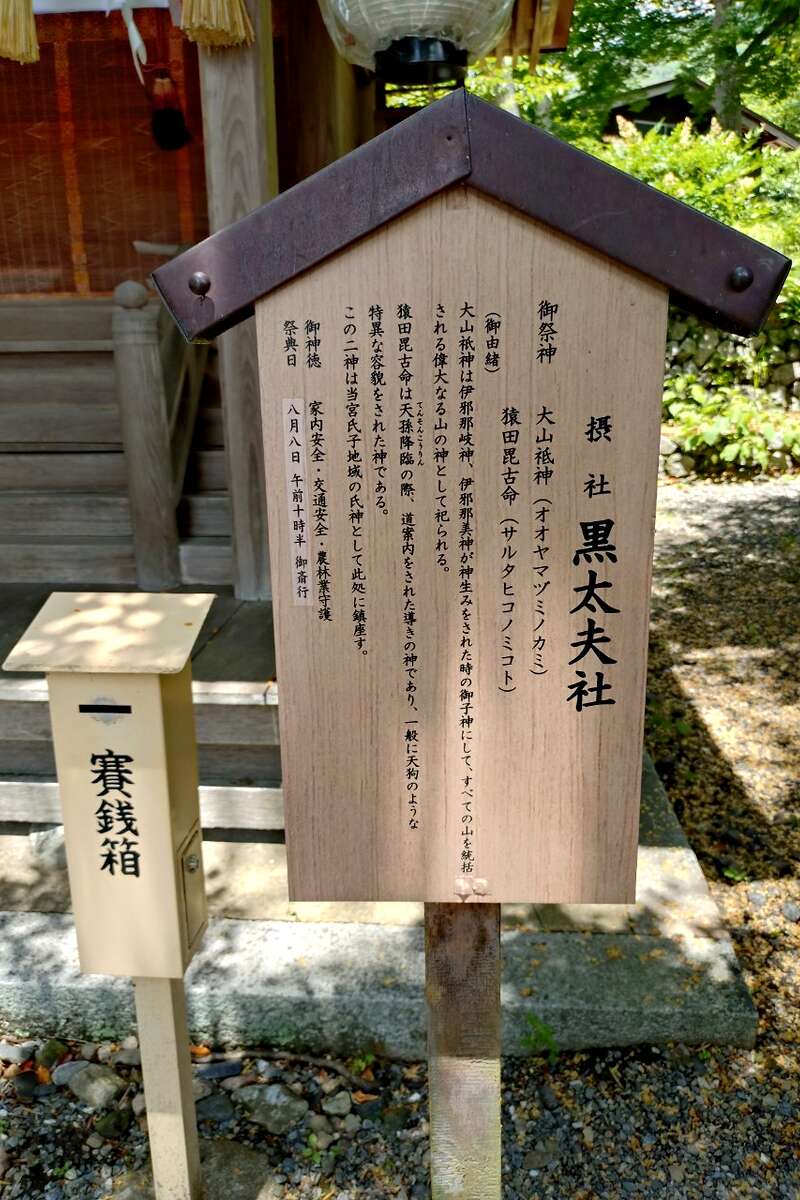 摂社 黒太夫社
御祭神 大山祇神(オオヤマヅミノカミ)
猿田毘古命(サルタヒコノミコト)
(御由緒)
大山祇神は伊邪那岐神、伊邪那美神が神生みをされた時の御子神にして、すべての山を統括
される偉大なる山の神として祀られる。
猿田毘古命は天孫降臨の際、道案内をされた導きの神であり、一般に天狗のような
てんそんこうりん
特異な容貌をされた神である。
この二神は当宮氏子地域の氏神として此処に鎮座す。
御神徳 家内安全・交通安全・農林業守護
祭典日 八月八日 午前十時半 御斎行
賽銭箱